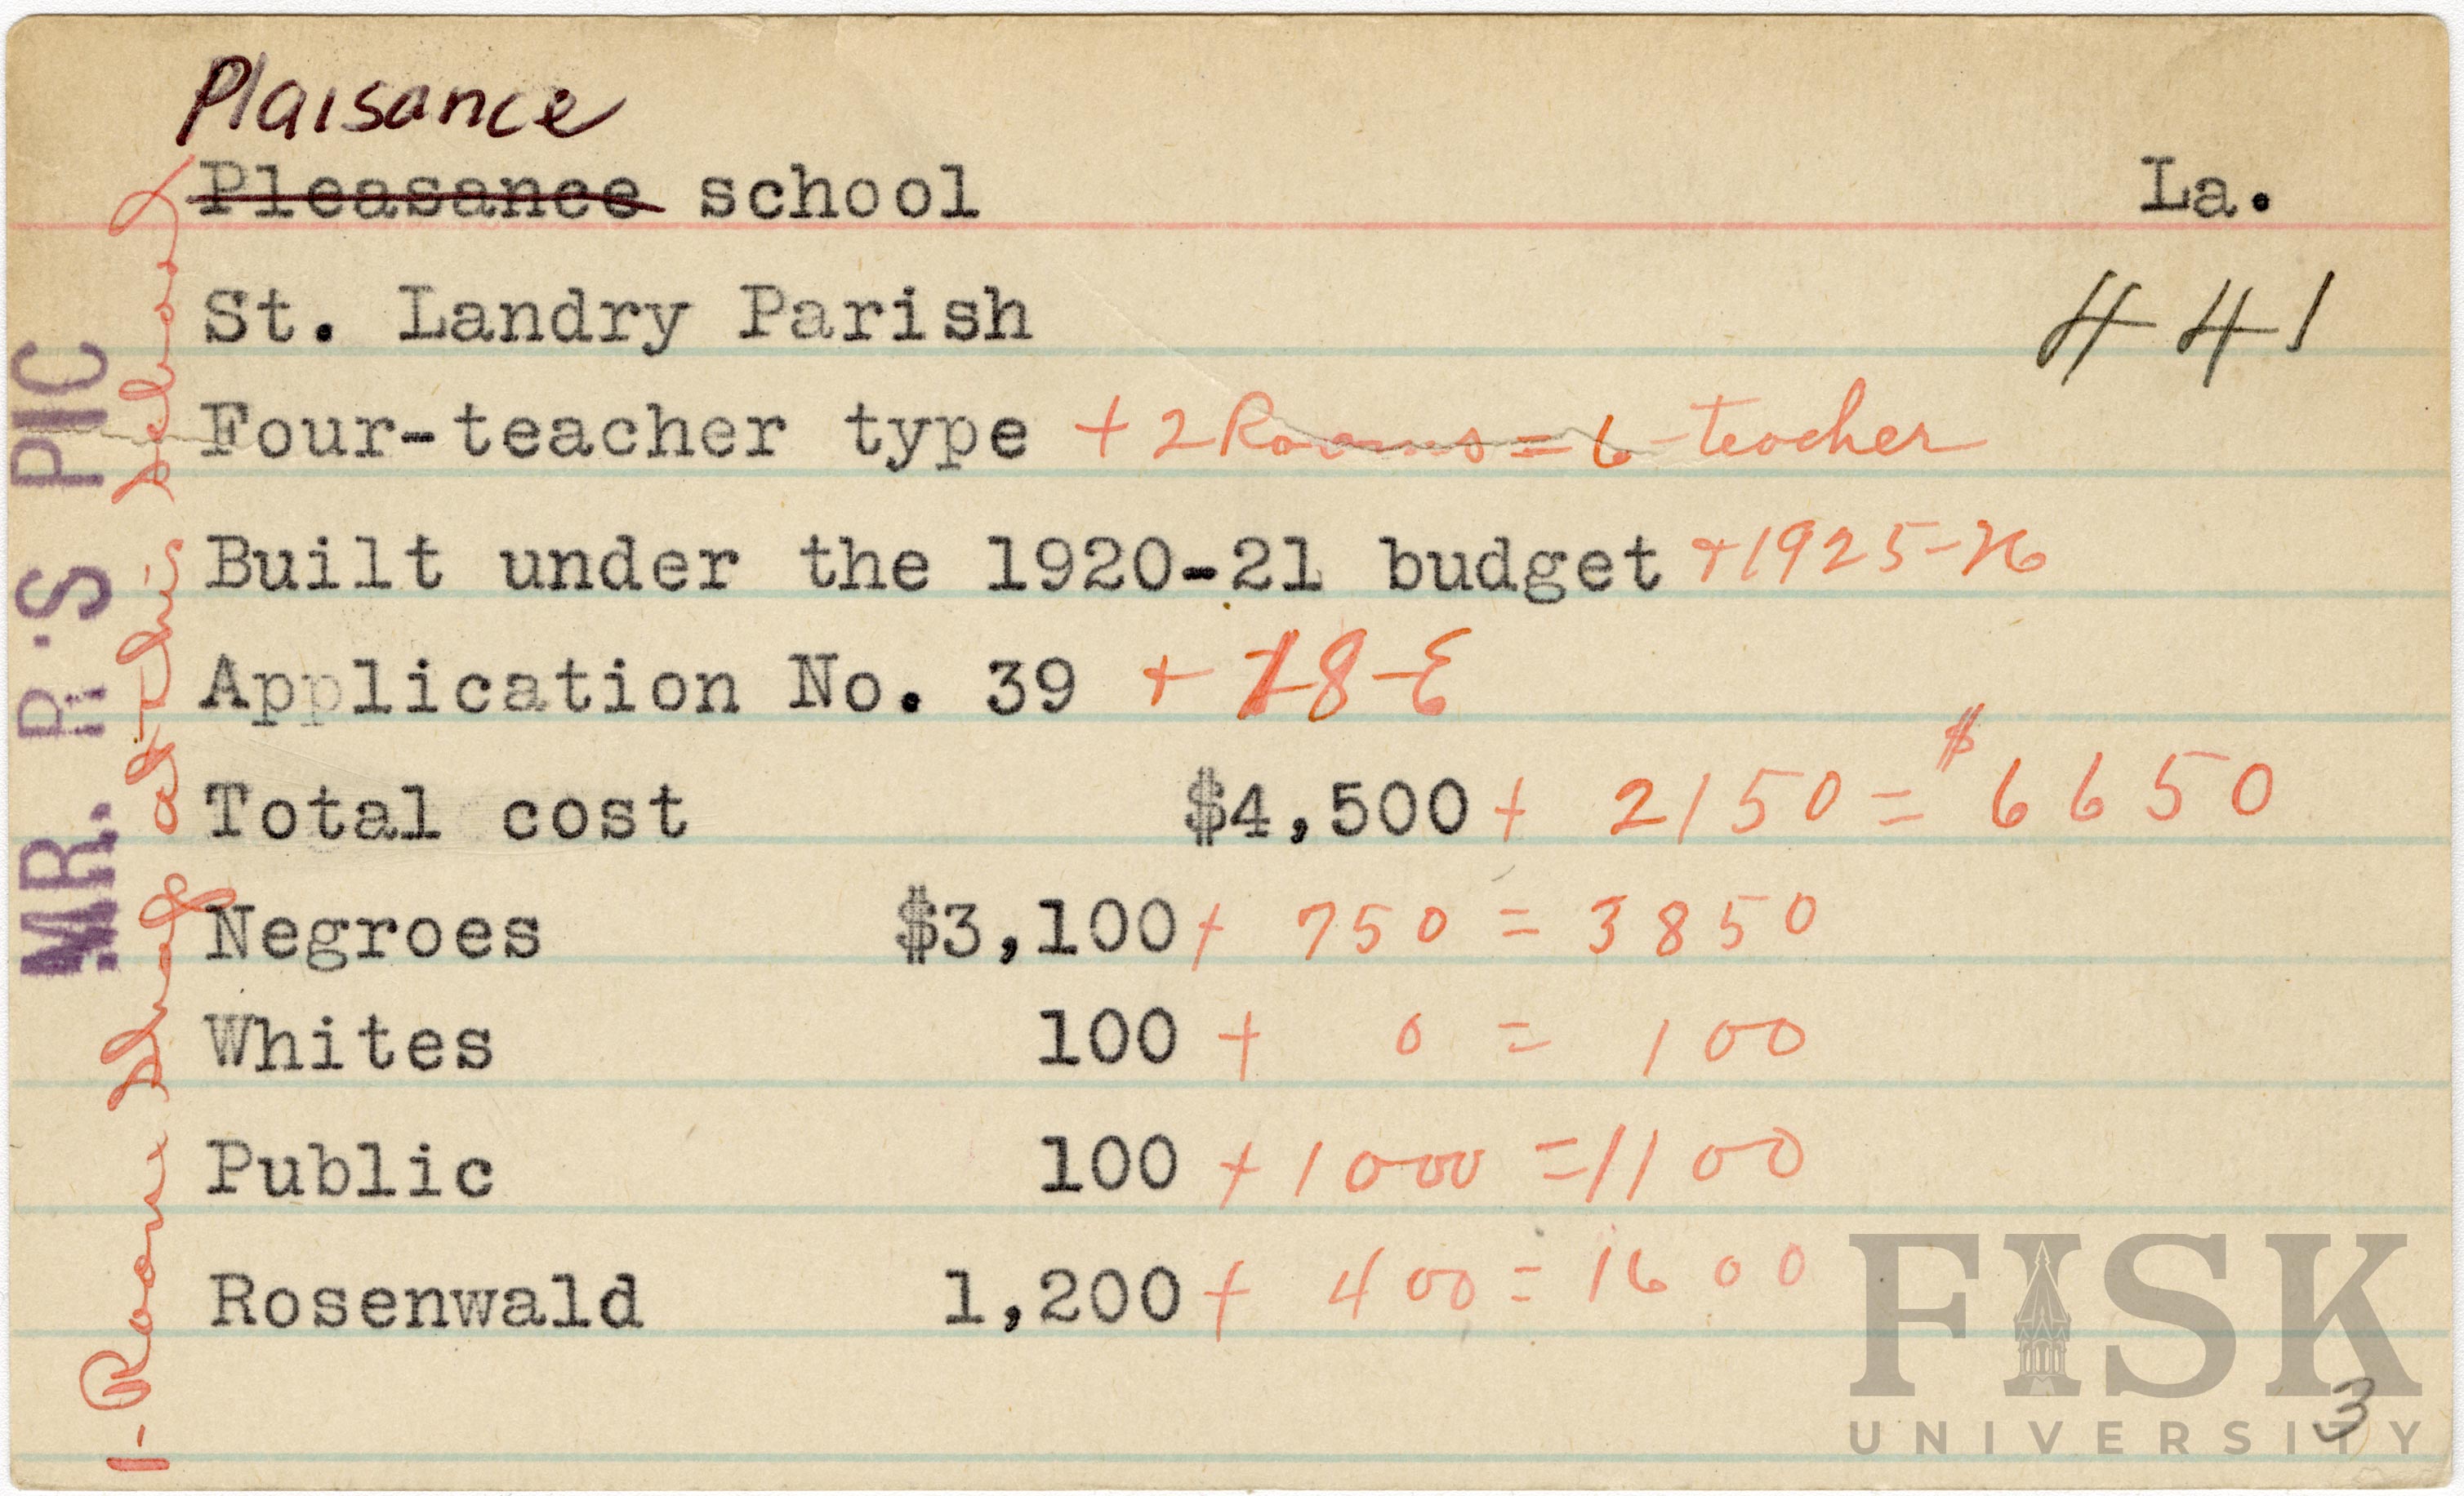 Plaisance
Pleasance school La.
St. Landry Parish 441
Four-teacher type + 2 Rooms = 6-teacher
Built under the 1920-21 budget + 1925-26
Application No. 39 + 18-E
Total cost $4,500 + 2150 = $6650
Negroes $3,100 + 750 = 3850
Whites 100 + 0 = 100
Public 100 + 1000 = 1100
Rosenwald 1,200 + 400 = 1600
1-Room Shop at this school
MR. R.S PIC
3
FISK
UNIVERSITY